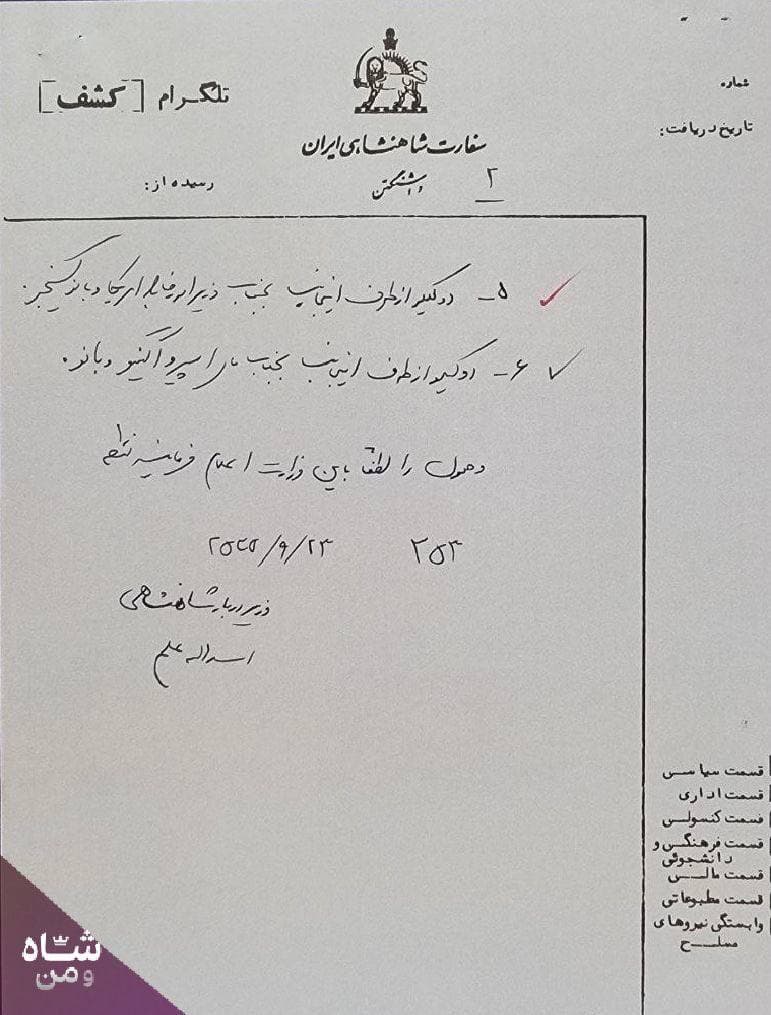 شماره
تلگرام [کشف]
تاریخ دریافت:
سفارت شاهنشاهی ایران
واشنگتن
۲
رسیده از:
۵- دو کیلو از طرف اینجانب بجناب وزیر امور خارجه امریکا و بانو کیسینجر.
۶- دو کیلو از طرف اینجانب بجناب اسپیرو اگنیو و بانو.
وصول را لطفا باین وزارت اعلام فرمائید
۲۵۳ ۲۵۳۵/۹/۲۳
وزیر دربار شاهنشاهی
اسداله علم
قسمت سیاسی
قسمت اداری
قسمت کنسولی
قسمت فرهنگی و
دانشجوئی
قسمت مالی
قسمت مطبوعاتی
وابستگی نیروهای
مسلح
شاه
و من